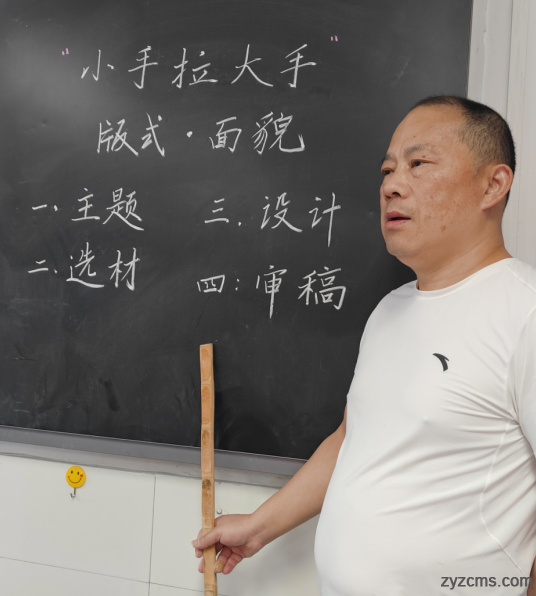 “小手拉大手”
版式·面貌
一.主题
二.选材
三.设计
四:审稿
zyzcms.com